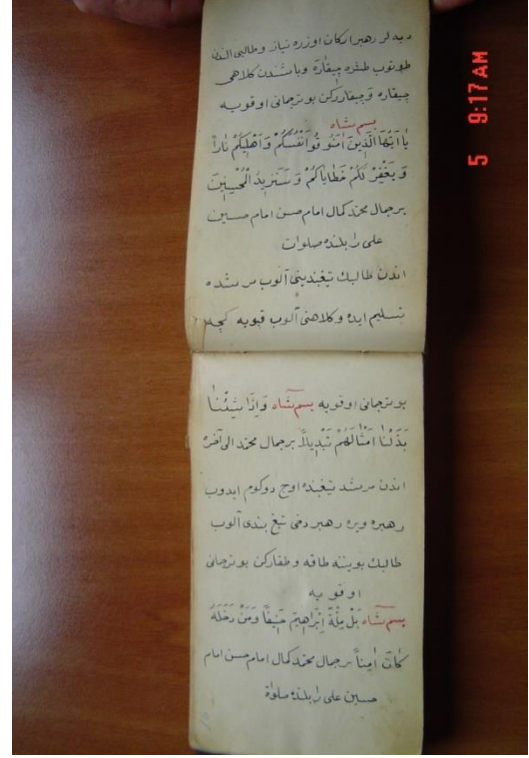 دیه لر رهبر ارکان اوزره نیاز و طالبی الندن
طوتوب طشره چیقاره و باشندن کلاهی
چیقاره و چیقاررکن بو ترجمانی اوقویه
بسم شاه
یَا اَیُّهَا الَّذِینَ اٰمَنُو قُوا اَنْفُسَکُمْ وَ اَهْلِیکُمْ نَاراً
وَ یَغْفِرْ لَکُمْ خَطَایَاکُمْ وَ سَنَزِیدُ الْمُحْسِنِینَ
بر جمال محمد کمال امام حسن امام حسین
علی را بلنده صلوات
اندن طالبك تیغبندینی آلوب مرشده
تسلیم ایده و کلاهنی آلوب قپویه کجه
بو ترجمانی اوقویه بسم شاه وَ اِذَا شِئْنَا
بَدَّلْنَا اَمْثَالَهُمْ تَبْدِیلاً بر جمال محمد الی آخره
اندن مرشد تیغبنده اوچ دوکوم ایدوب
رهبره ویره رهبر دخی تیغ بندی آلوب
طالبك بویننه طاقه و طقارکن بو ترجمانی
اوقویه
بسم شاه بَلْ مِلَّةَ اِبْرَاهِیمَ حَنِیفاً وَمَنْ دَخَلَهُ
کَانَ اٰمِناً بر جمال محمد کمال امام حسن امام
حسین علی را بلنده صلواة
5 9:17AM